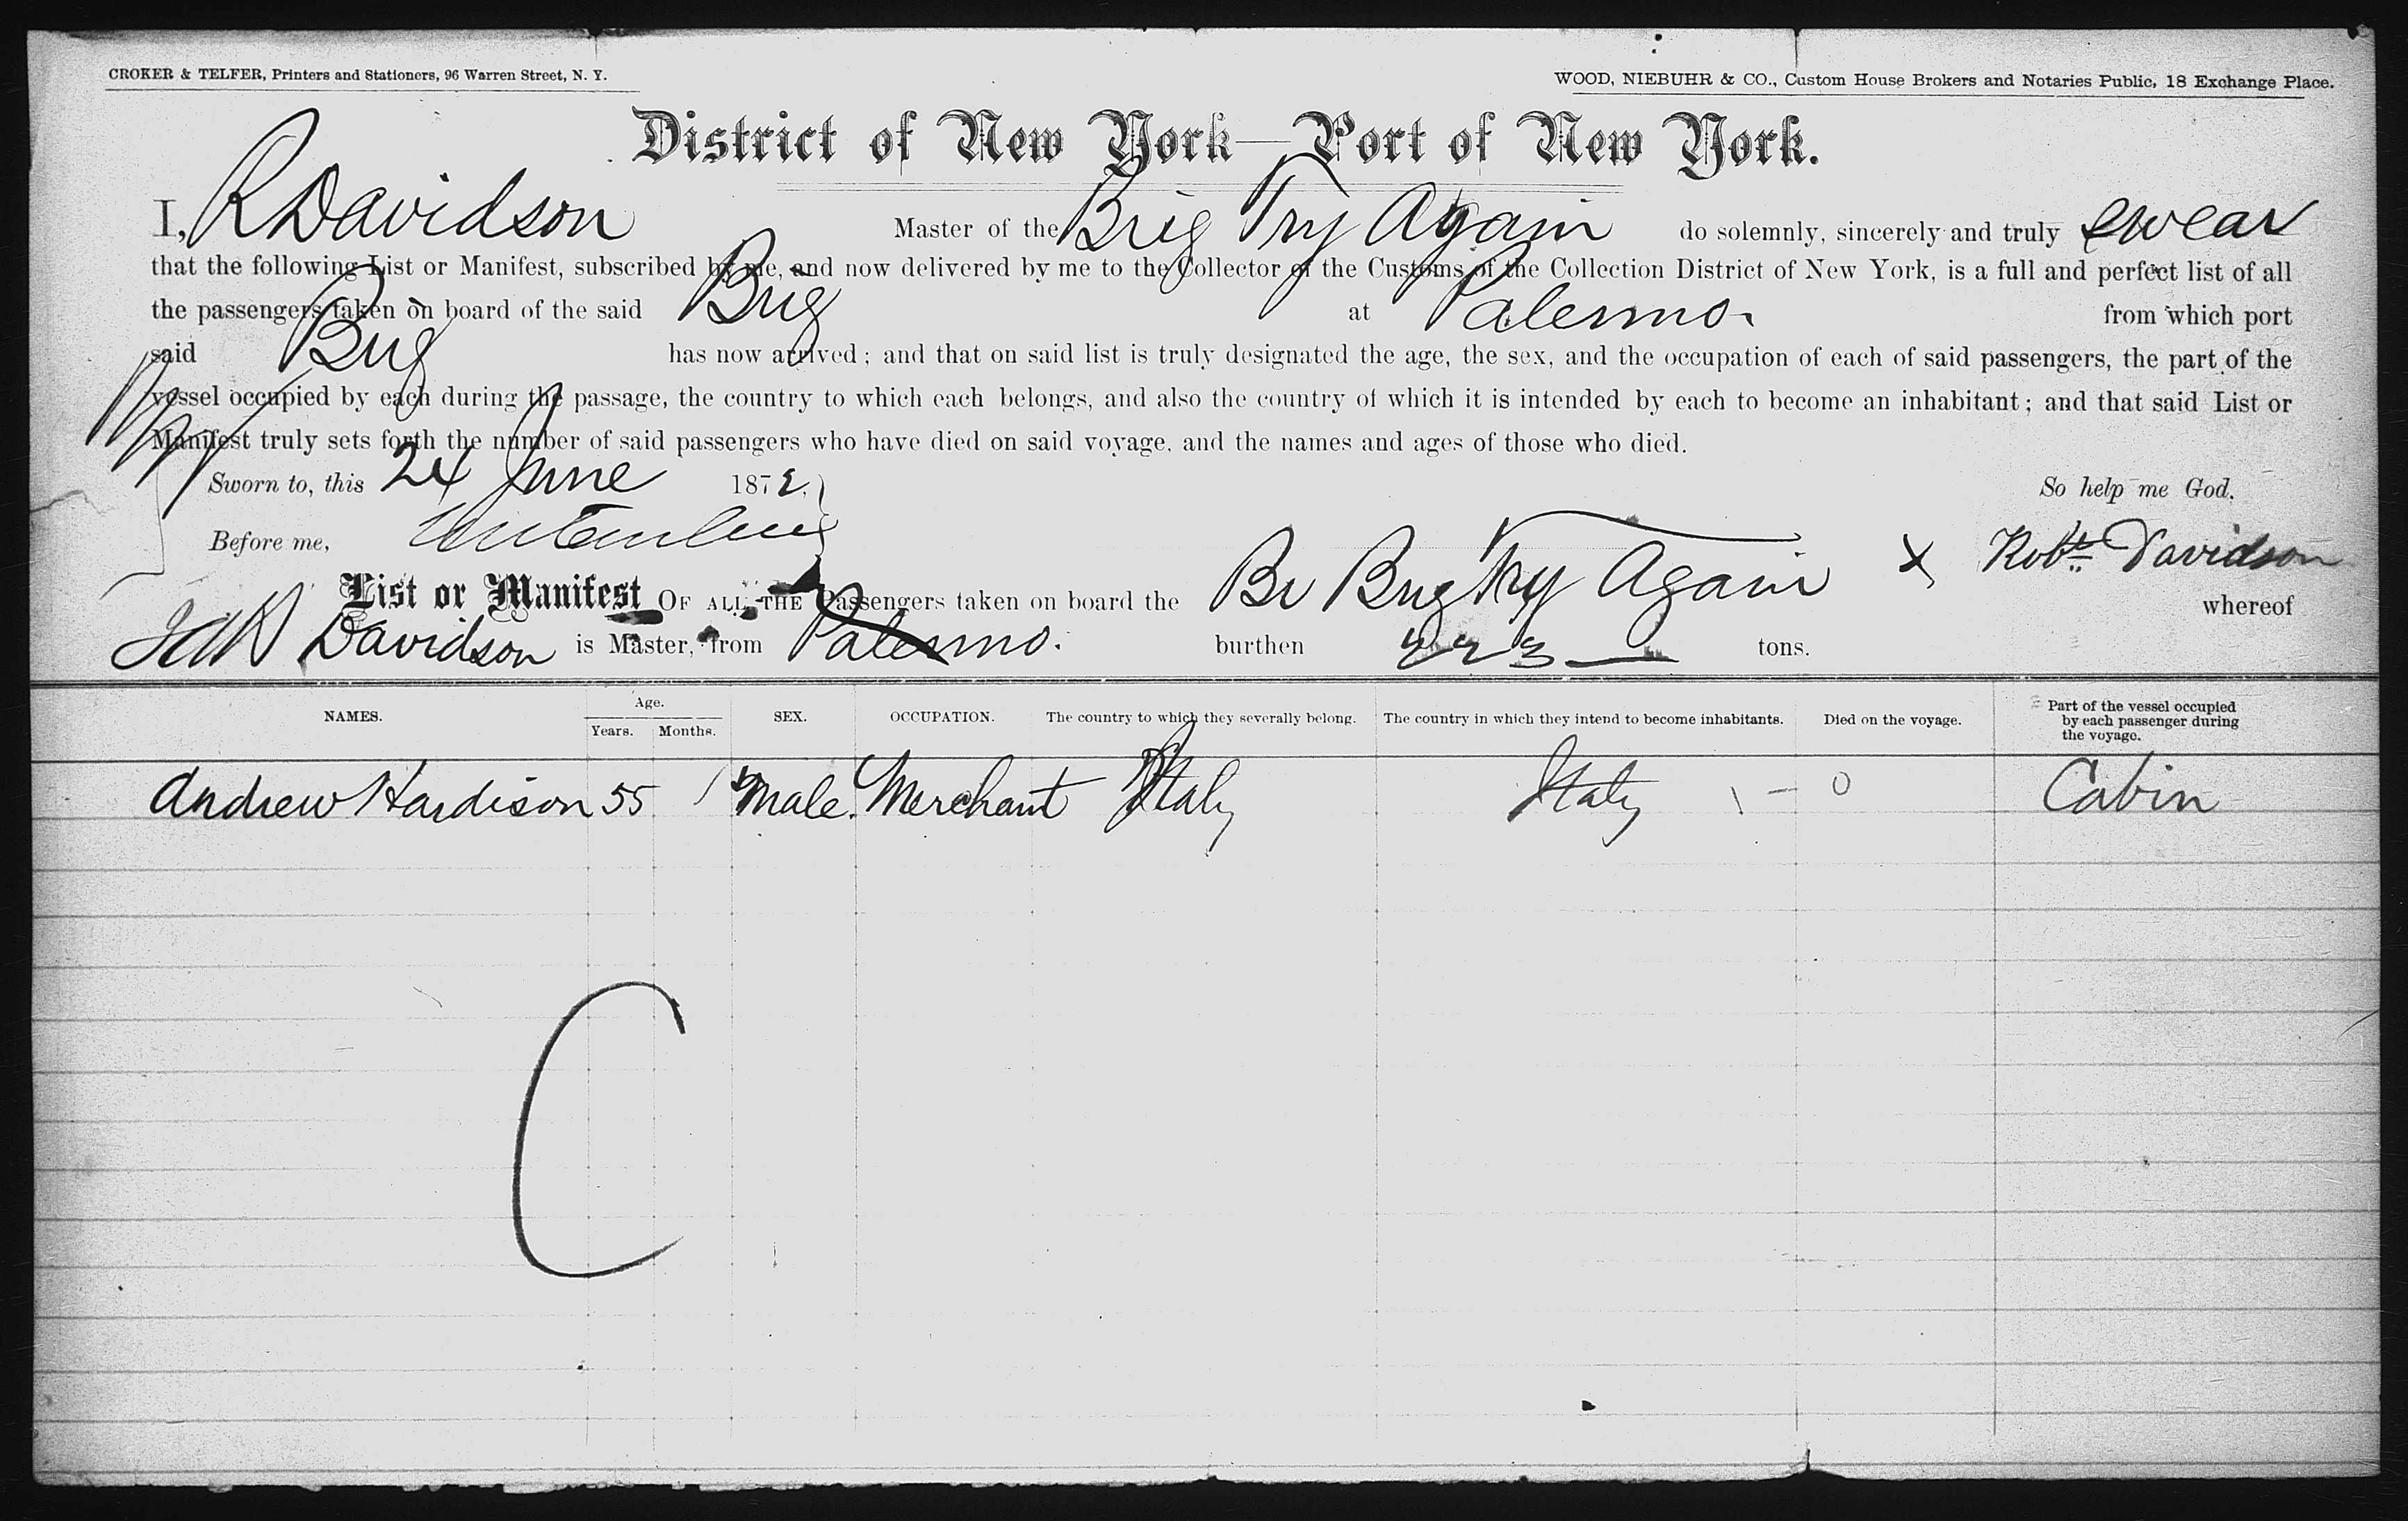 CROKER & TELFER, Printers and Stationers, 96 Warren Street, N. Y.
WOOD, NIEBUHR & CO., Custom House Brokers and Notaries Public, 18 Exchange Place.
District of New York—Port of New York.
I, R Davidson Master of the Brig Try Again do solemnly, sincerely and truly swear
that the following List or Manifest, subscribed by me, and now delivered by me to the Collector of the Customs of the Collection District of New York, is a full and perfect list of all
the passengers taken on board of the said Brig at Palermo from which port
said Brig has now arrived; and that on said list is truly designated the age, the sex, and the occupation of each of said passengers, the part of the
vessel occupied by each during the passage, the country to which each belongs, and also the country of which it is intended by each to become an inhabitant; and that said List or
Manifest truly sets forth the number of said passengers who have died on said voyage, and the names and ages of those who died.
Sworn to, this 24 June 1872. So help me God.
Before me, X Robt Davidson
List or Manifest OF ALL THE Passengers taken on board the Br Brig Try Again whereof
Davidson is Master, from Palermo. burthen 223 tons.
NAMES. Age. Years. Months. SEX. OCCUPATION. The country to which they severally belong. The country in which they intend to become inhabitants. Died on the voyage. Part of the vessel occupied by each passenger during the voyage.
Andrew Hardison 55 Male. Merchant Italy Italy \ — 0 Cabin
C